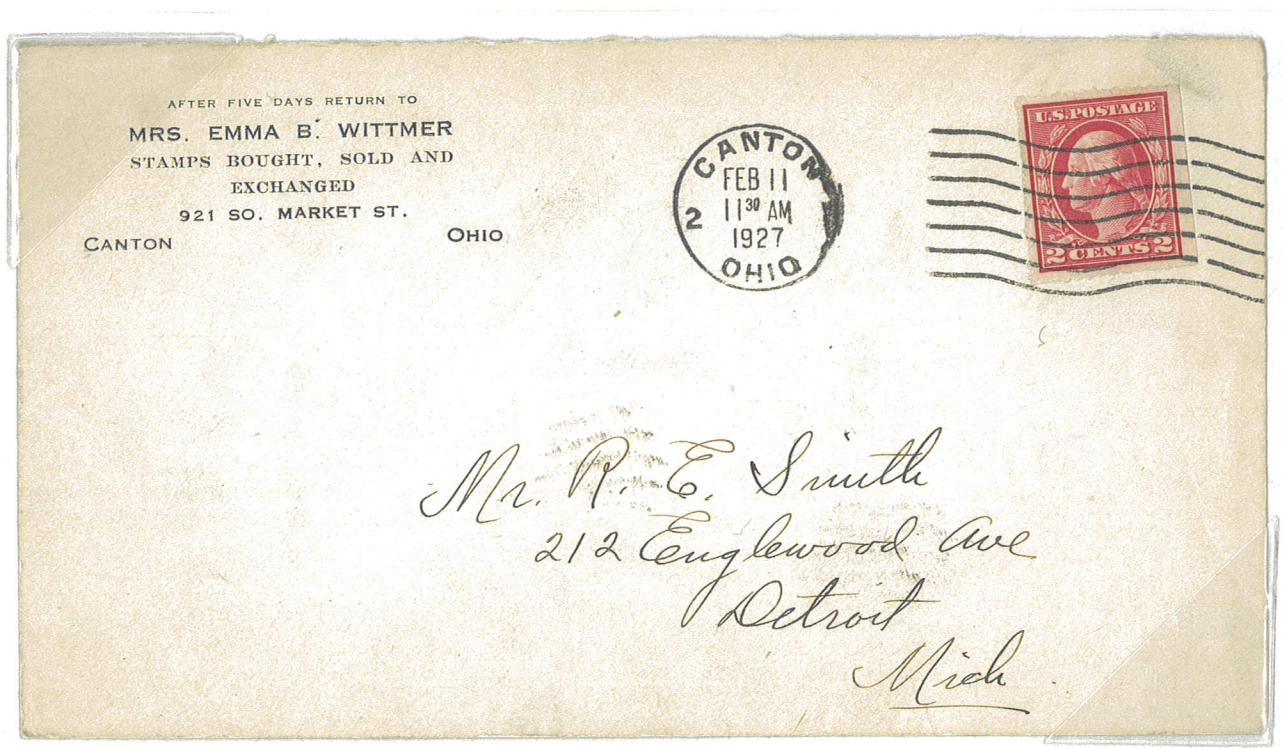 AFTER FIVE DAYS RETURN TO
MRS. EMMA B. WITTMER
STAMPS BOUGHT, SOLD AND
EXCHANGED
921 SO. MARKET ST.
CANTON OHIO
CANTON
FEB 11
11 30 AM
1927
2
OHIO
U.S. POSTAGE
2 CENTS 2
Mr. R. E. Smith
212 Englewood Ave
Detroit
Mich